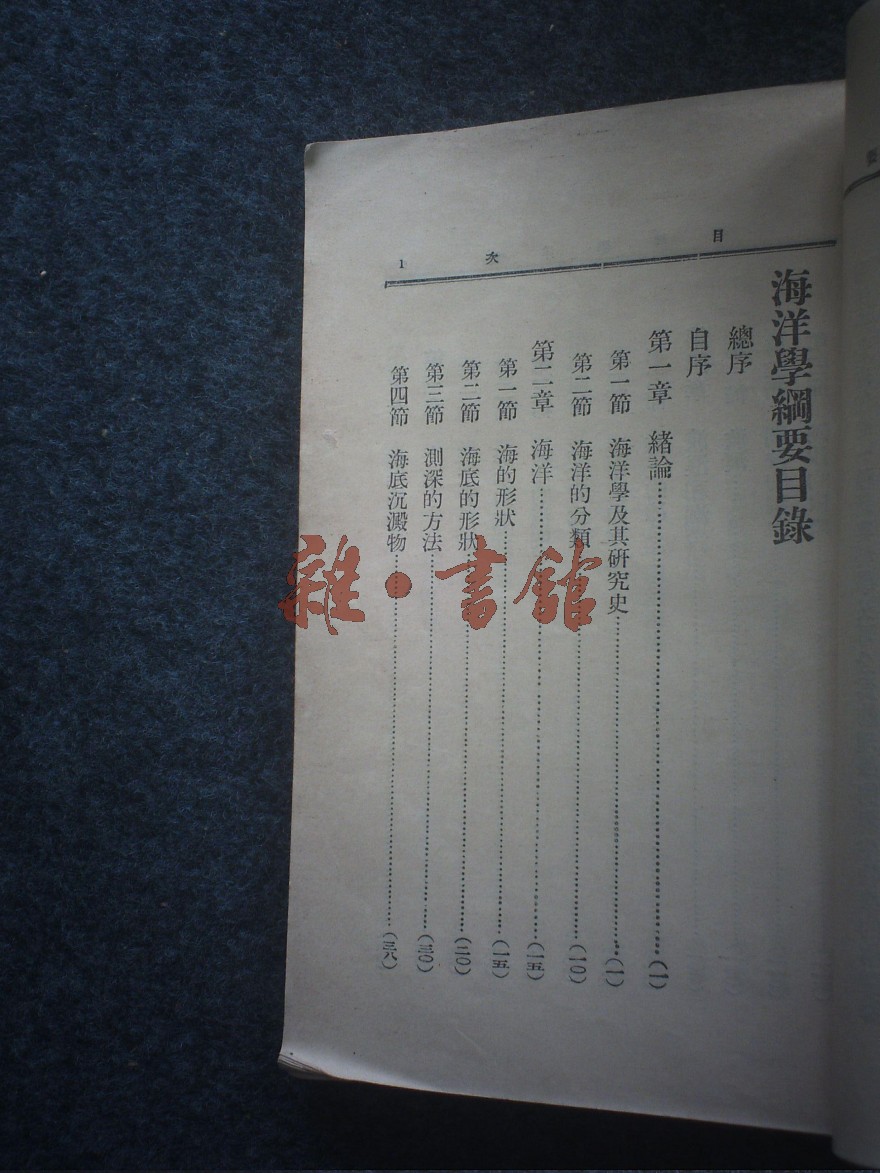 目次 1
海洋學綱要目錄
總序
自序
第一章 緒論……(一)
第一節 海洋學及其研究史……(一)
第二節 海洋的分類……(一〇)
第二章 海洋……(一五)
第一節 海的形狀……(一五)
第二節 海底的形狀……(二〇)
第三節 測深的方法……(三〇)
第四節 海底沉澱物……(三八)
雜·書館